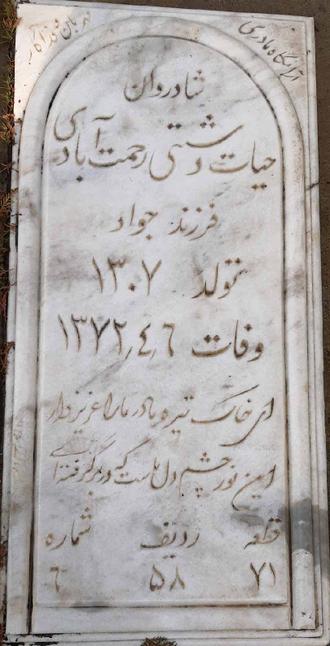 آرامگاه مادری
مهربان و فداکار
شادروان
حیات دشتی رحمت آبادی
فرزند جواد
تولد ۱۳۰۷
وفات ۱۳۷۲٫٤٫٦
ای خاک تیره مادر ما را عزیز دار
این نور چشم دل ماست که در بر گرفته ای
قطعه ردیف شماره
۷۱ ۵۸ ٦